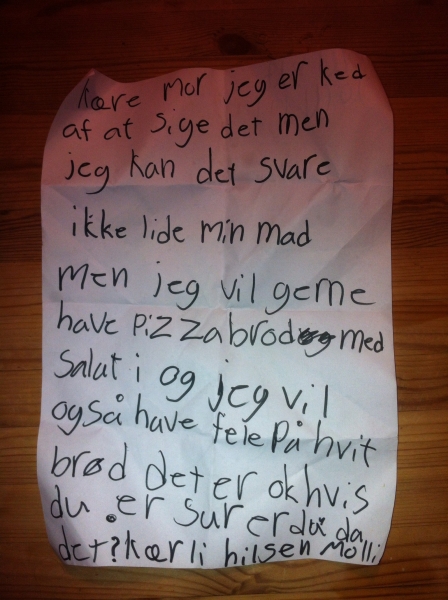 kære mor jeg er ked
af at sige det men
jeg kan det svare
ikke lide min mad
men jeg vil geme
have pizzabrod med
salat i og jeg vil
også have fele på hvit
brød det er ok hvis
du er sur er du da
det? kær li hilsen Molli